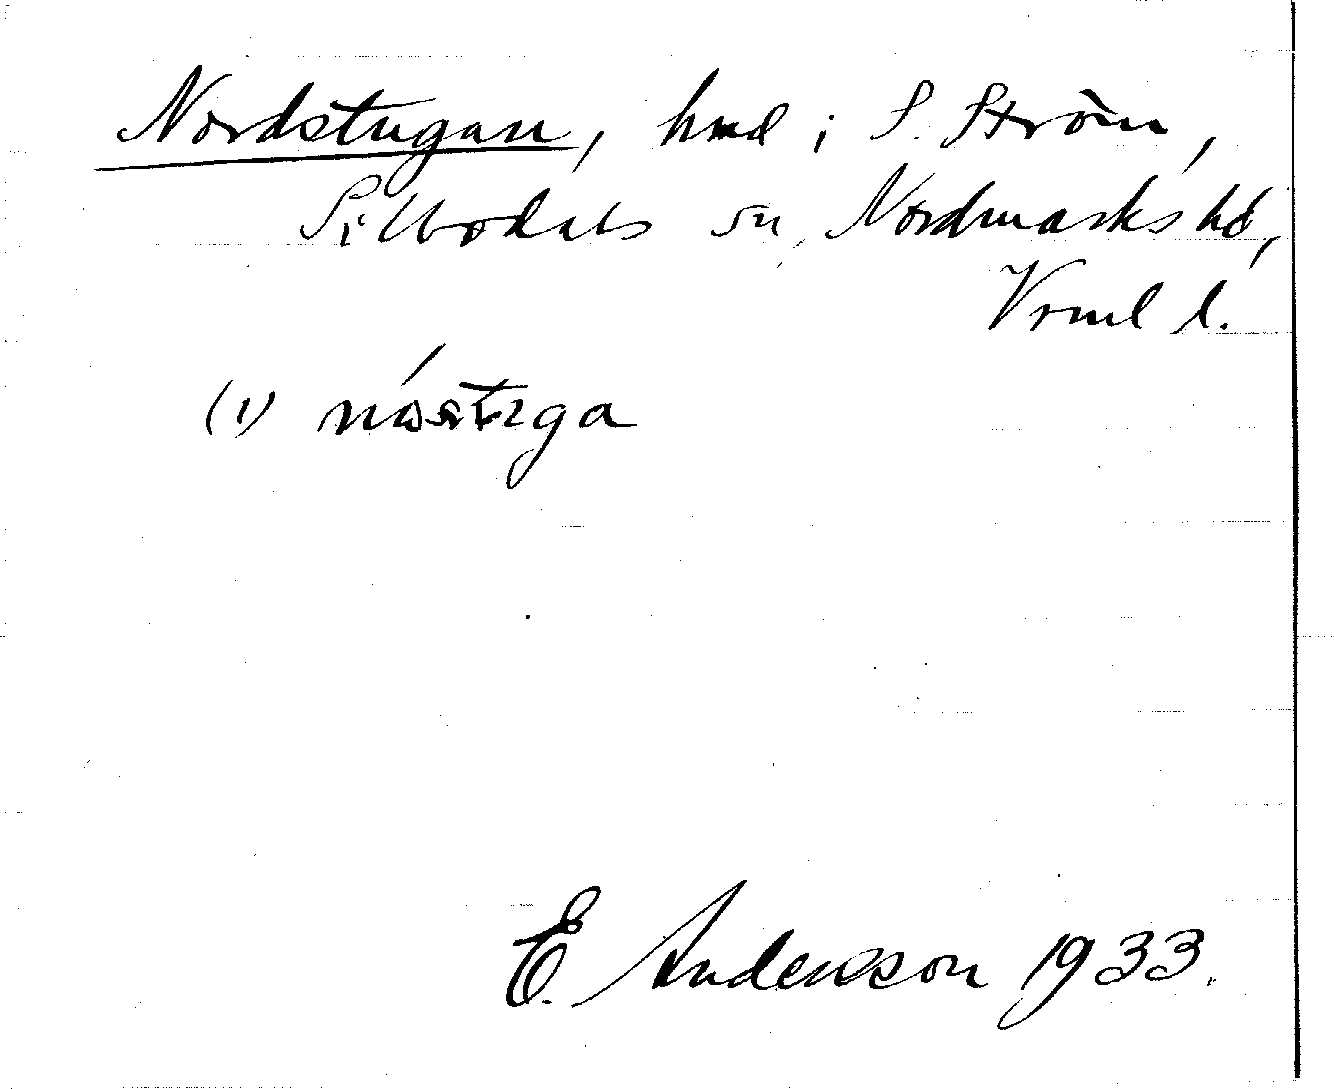 Nordstugan, hmd i S. Ström,
Silbodals sn, Nordmarks hd,
Vrml l.
(1)
E. Andersson 1933.